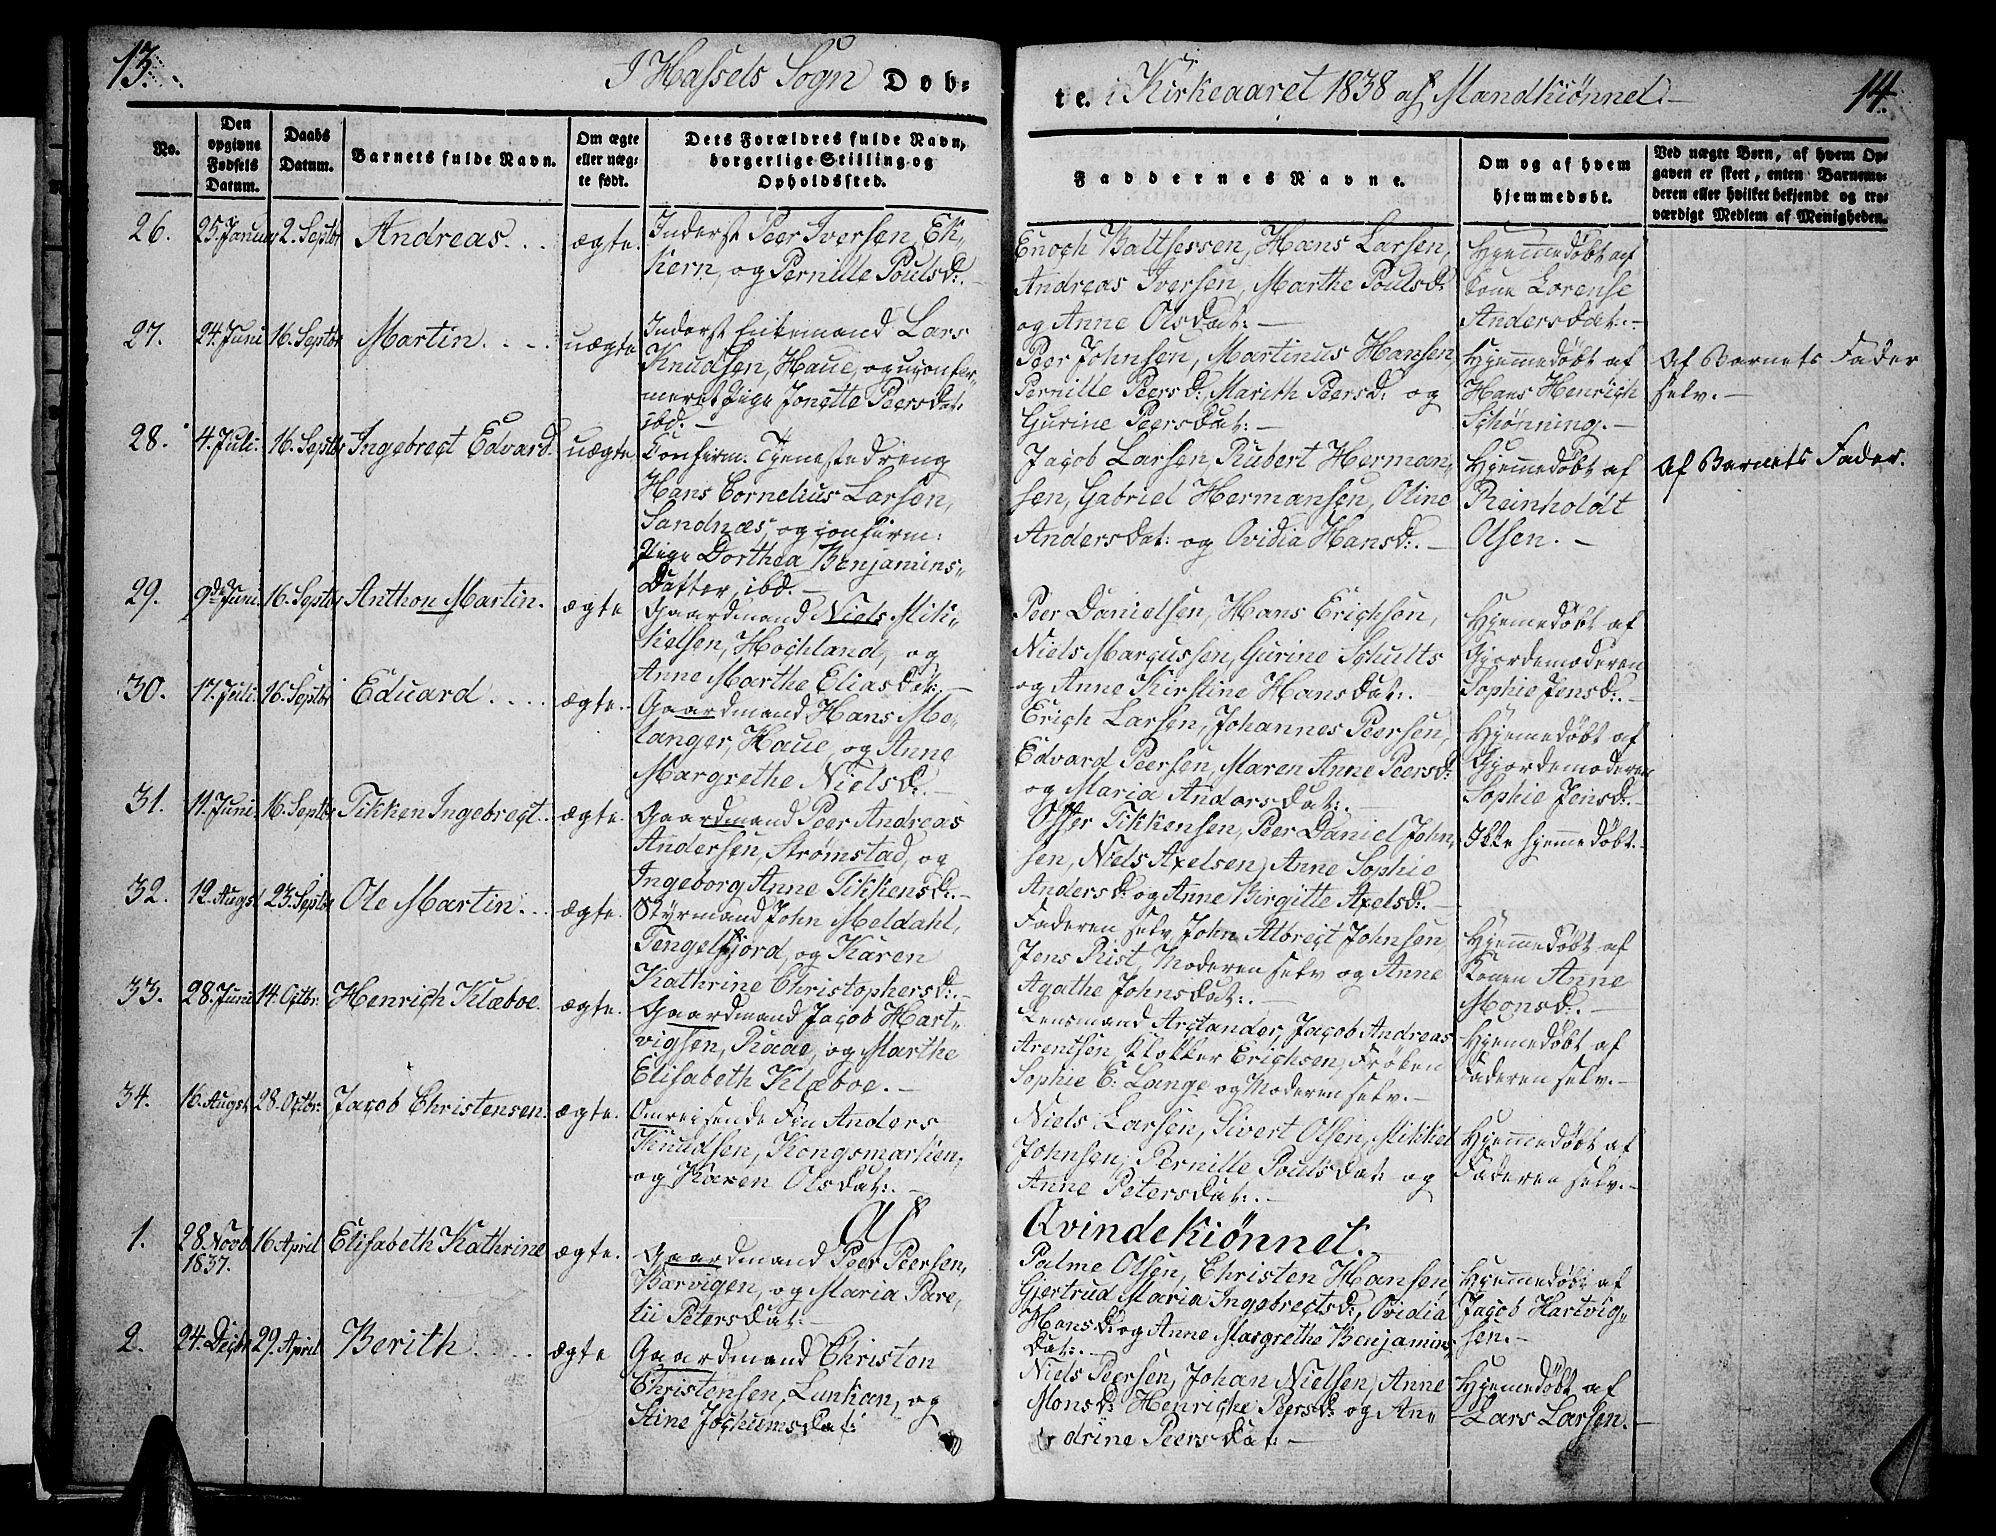 13.
I Hassels Sogn Døb-
te. i Kirkeaaret 1838 af Mandkiønnet.-
14.
No.
Den opgivne Fødsels Datum.
Daabs Datum.
Barnets fulde Navn.
Om ægte eller uæg- te født.
Dets Forældres fulde Navn, borgerlige Stilling og Opholdssted.
Faddernes Navne.
Om og af hvem hjemmedøbt.
Ved uægte Børn, af hvem Op-
gaven er skeet, enten Barnemo-
deren eller hvilket bekjendt og tro-
værdigt Medlem af Menigheden.
26. 25. Januar 2. Septbr Andreas. . . ægte.
Inderst Peer Iversen, Ek-
kern, og Pernille Poulsd:.-
Enoch Baltsersen, Hans Larsen,
Andreas Iversen, Marthe Poulsd:
og Anne Olsdat:.-
Hjemmedøbt af
Kone Lorense
Andersdat:.-
27. 24. Juni 16. Septbr Martin. . . . uægte
Inderst Enkemand Lars
Knudsen, Haue, og uconfir-
meret Pige Jonette Peersdat:
ibd:.-
Peer Johnsen, Martinus Hansen,
Pernille Peersd: Marith Peersd: og
Gurine Peersdat:.-
Hjemmedøbt af
Hans Henrich
Schønning.-
Af Barnets Fader
selv.-
28. 4. Juli. 16. Septbr Ingebregt Edvard. uægte
Confirm. Tjenestedreng
Hans Cornelius Larsen,
Sandnæs og confirm:
Pige Dorthea Benjamins-
datter, ibd.-
Jacob Larsen, Rubert Herman-
sen, Gabriel Hermansen, Oline
Andersdat: og Ovidia Hansd:.-
Hjemmedøbt af
Reinholdt
Olsen.-
Af Barnets Fader.
29. 9de Juni 16. Septbr Anthon Martin. ægte
Gaardmand Niels Mik-
kelsen, Hochland, og
Anne Marthe Eliasdat:.-
Peer Danielsen, Hans Erichsen,
Niels Marcussen, Gurine Schults
og Anne Kirstine Hansdat:.-
Hjemmedøbt af
Gjordemoderen
Sophie Jensd:.-
30. 17. Juli. 16. Septbr Eduard. . . . ægte.
Gaardmand Hans Me-
langer, Haue, og Anne
Margrethe Nielsd:.-
Erich Larsen, Johannes Peersen,
Edvard Peersen, Maren Anne Peersd:
og Maria Andersdat:.-
Hjemmedøbt af
Gjordemoderen
Sophie Jensd:.-
31. 11. Juni. 16. Septbr Tikken Ingebregt. ægte.
Gaardmand Peer Andreas
Andersen, Strømstad, og
Ingeborg Anne Tikkensd:.-
Offer Tikkensen, Peer Daniel John-
sen, Niels Axelsen, Anne Sophie
Andersd: og Anne Birgitte Axelsd:.-
Ikke hjemmedøbt.-
32. 12. Augst 23. Septbr Ole Martin. . . ægte.
Styrmand John Meldahl,
Tengelfjord, og Karen
Kathrine Christophersd:.-
Faderen selv, John Albregt Johnsen,
Jens Rist, Moderen selv og Anne
Agathe Johnsdat:.-
Hjemmedøbt af
Konen Anne
Monsd:.-
33. 28. Juni 14. Octbr. Henrich Klæboe. ægte.
Gaardmand Jacob Hart-
vigsen, Raae, og Marthe
Elisabeth Klæboe.-
Lensmand Arctander, Jacob Andreas
Arentsen, Klokker Erichsen, Frøken
Sophie E: Lange og Moderen selv.-
Hjemmedøbt af
Faderen selv.-
34. 16. Augst 28. Octbr. Jacob Christensen. ægte.
Omreisende Fin Anders
Knudsen, Kongsmarken,
og Karen Olsdat:.-
Niels Larsen, Sivert Olsen, Mikkel
Johnsen, Pernille Poulsdat: og
Anne Petersdat:.-
Hjemmedøbt af
Faderen selv.-
Af Qvindekiønnet.
1. 28. Novb. 1837. 16 April Elisabeth Kathrine ægte.
Gaardmand Peer Peersen,
Barvigen, og Maria Pare-
lii Petersdat:.-
Palme Olsen, Christen Hansen,
Gjertrud Maria Ingebregtsd:, Ovidia
Hansd: og Anne Margrethe Benjamins-
dat:.-
Hjemmedøbt af
Jacob Hartvig-
sen.-
2. 24. Decbr 29. April Berith. . . . ægte
Gaardmand Christen
Christensen, Lunkan, og
Stine Jochumsdat:
Niels Peersen, Johan Nielsen, Anne
Monsd: Henriche Peersd: og An-
drine Peersdat:.-
Hjemmedøbt af
Lars Larsen.-